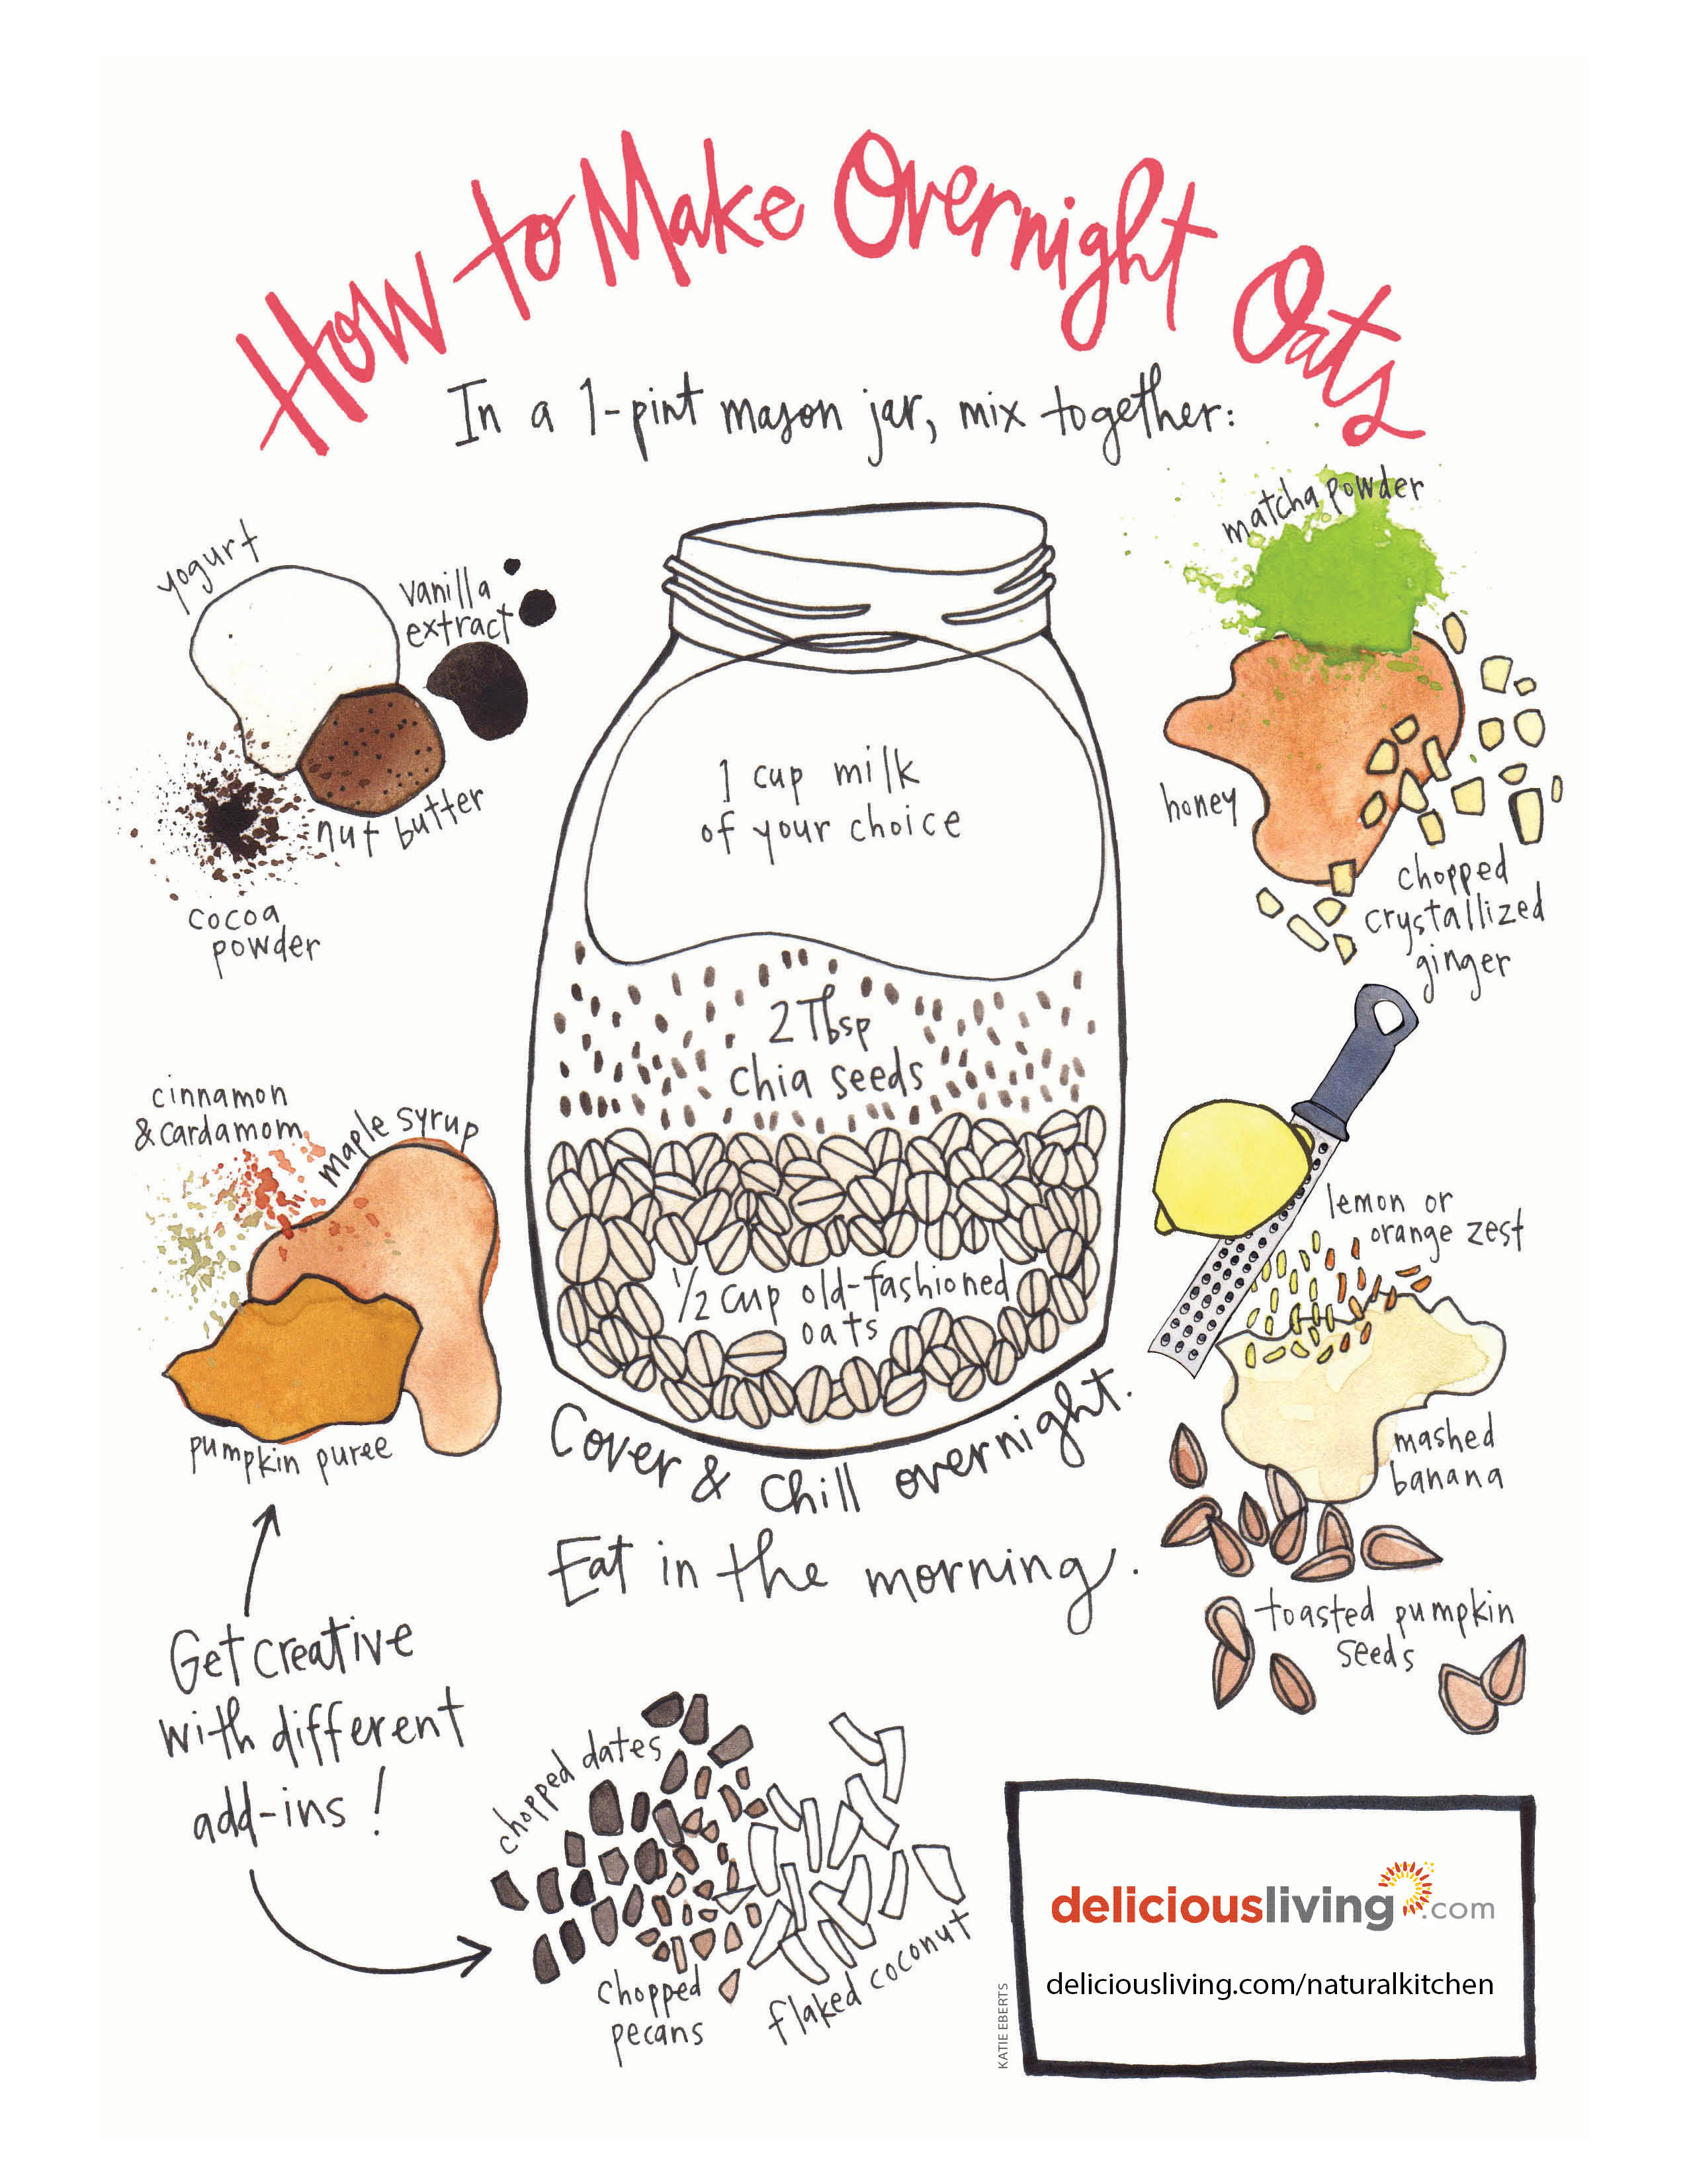 How to Make Overnight Oats
In a 1-pint mason jar, mix together:
yogurt
vanilla
extract
nut butter
cocoa
powder
matcha powder
honey
chopped
crystallized
ginger
1 cup milk
of your choice
2 Tbsp
chia seeds
1/2 cup old-fashioned
oats
cinnamon
& cardamom
maple syrup
pumpkin puree
lemon or
orange zest
mashed
banana
toasted pumpkin
seeds
Cover & Chill overnight.
Eat in the morning.
Get creative
with different
add-ins!
chopped dates
chopped
pecans
flaked coconut
KATIE EBERTS
deliciousliving.com
deliciousliving.com/naturalkitchen